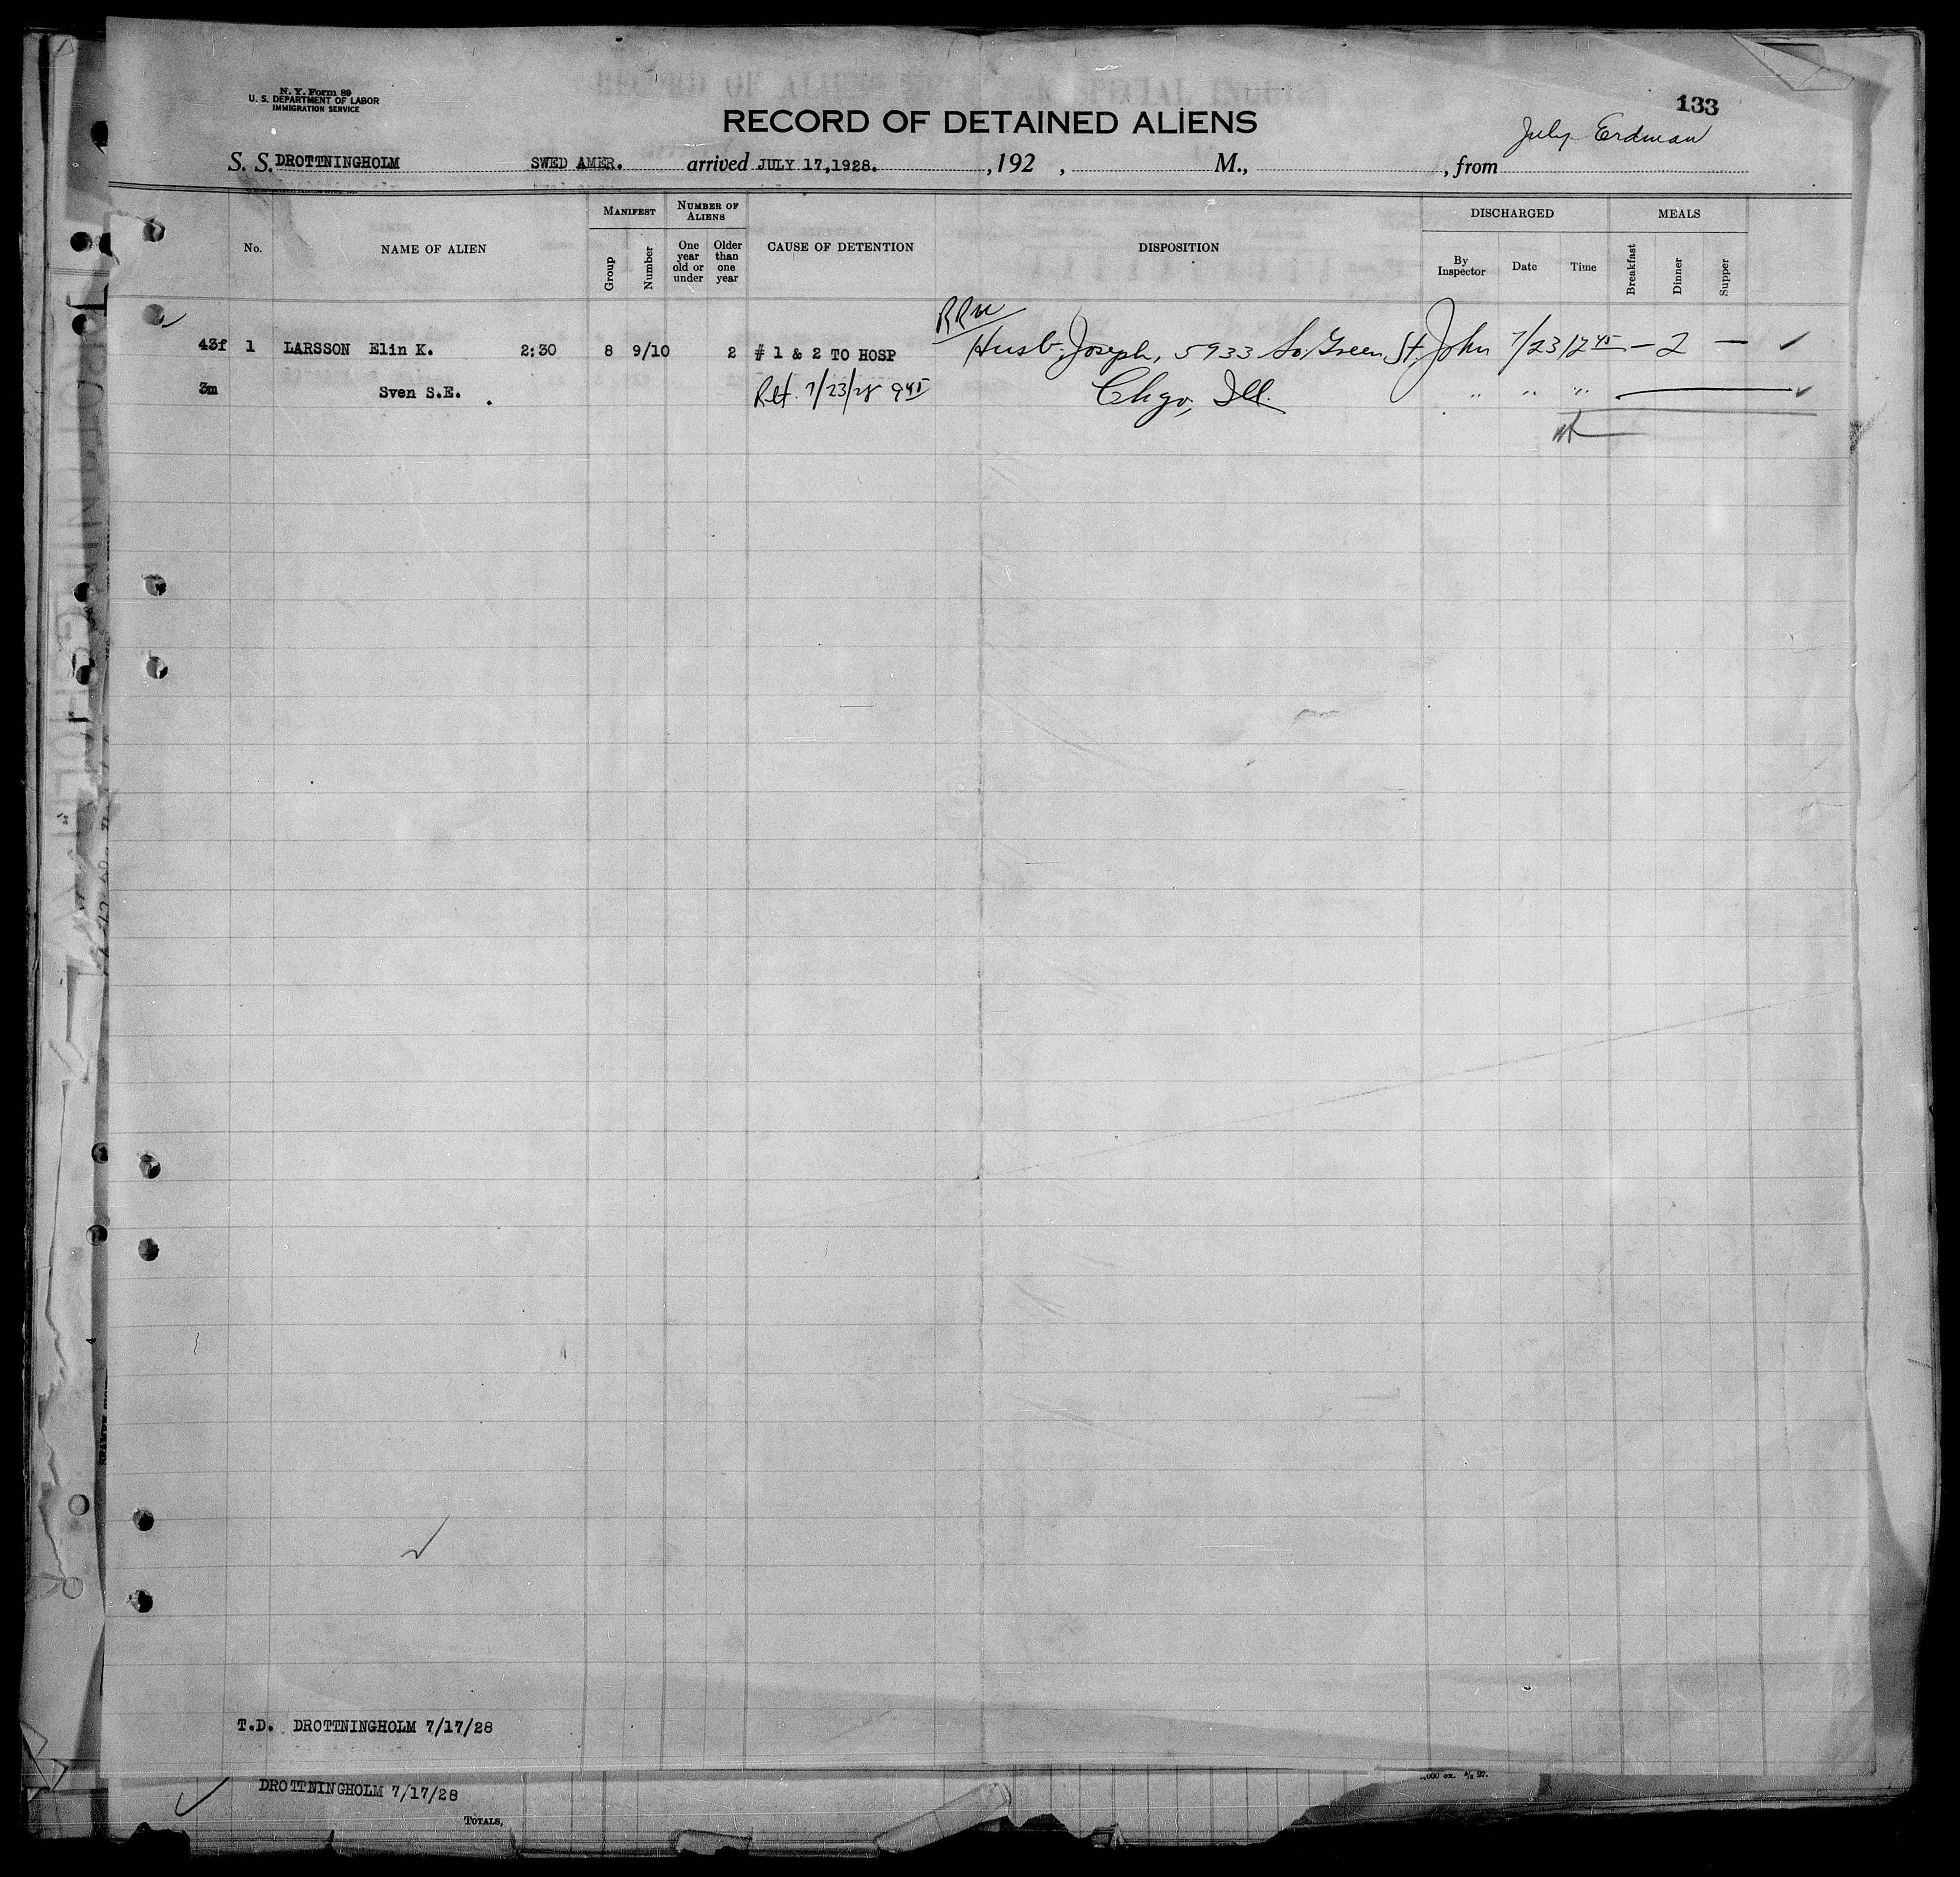 N. Y. Form 89
U. S. DEPARTMENT OF LABOR
IMMIGRATION SERVICE
133
RECORD OF DETAINED ALIENS
July Erdman
S. S. DROTTNINGHOLM SWED AMER. arrived JULY 17,1928. , 192 , M., , from
No. NAME OF ALIEN MANIFEST Group Number NUMBER OF ALIENS One year old or under Older than one year CAUSE OF DETENTION DISPOSITION DISCHARGED By Inspector Date Time MEALS Breakfast Dinner Supper
43f 1 LARSSON Elin K. 2:30 8 9/10 2 # 1 & 2 TO HOSP Husb, Joseph, 5933 So. Green St. John 7/23 12 45 — 2 — ✓
3m Sven S.E. Ret. 7/23/28 9 45 Chgo, Ill. " " "
T.D. DROTTNINGHOLM 7/17/28
DROTTNINGHOLM 7/17/28
TOTALS,